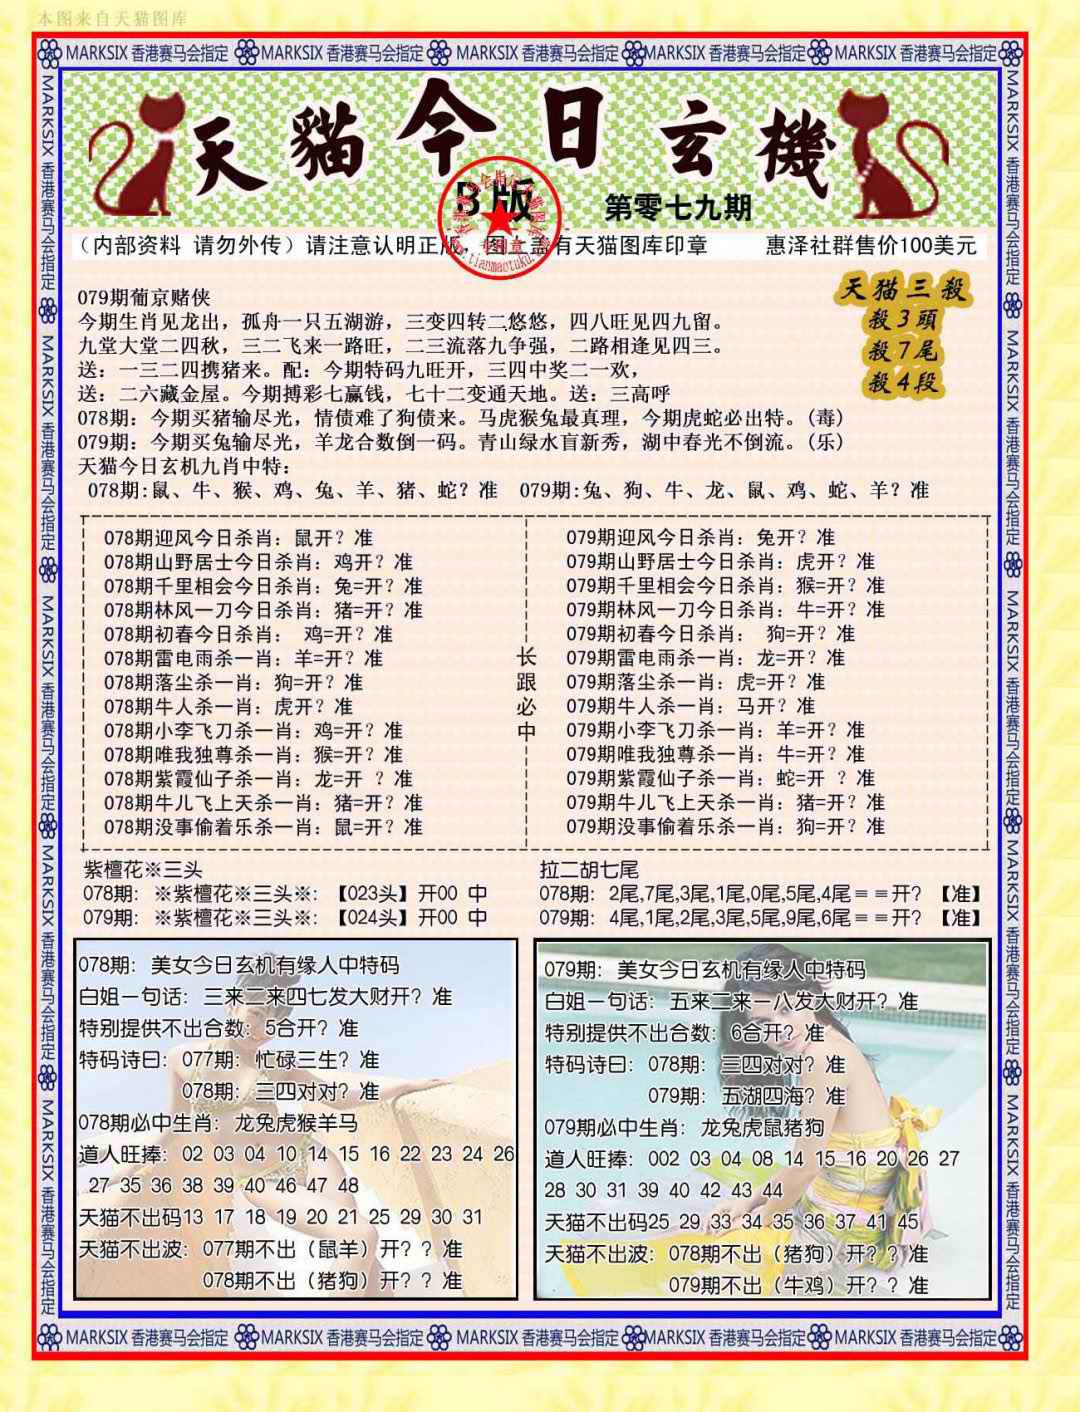 本图来自天猫图库
MARKSIX 香港赛马会指定 MARKSIX 香港赛马会指定 MARKSIX 香港赛马会指定 MARKSIX 香港赛马会指定 MARKSIX 香港赛马会指定
MARKSIX 香港赛马会指定 MARKSIX 香港赛马会指定 MARKSIX 香港赛马会指定 MARKSIX 香港赛马会指定 MARKSIX 香港赛马会指定
MARKSIX 香港赛马会指定 MARKSIX 香港赛马会指定 MARKSIX 香港赛马会指定 MARKSIX 香港赛马会指定 MARKSIX 香港赛马会指定
天貓今日玄機
B版
第零七九期
（内部资料 请勿外传）请注意认明正版，图上盖有天猫图库印章 惠泽社群售价100美元
天猫三殺
殺3頭
殺7尾
殺4段
079期葡京赌侠
今期生肖见龙出，孤舟一只五湖游，三变四转二悠悠，四八旺见四九留。
九堂大堂二四秋，三二飞来一路旺，二三流落九争强，二路相逢见四三。
送：一三二四携猪来。配：今期特码九旺开，三四中奖二一欢，
送：二六藏金屋。今期搏彩七赢钱，七十二变通天地。送：三高呼
078期：今期买猪输尽光，情债难了狗债来。马虎猴兔最真理，今期虎蛇必出特。(毒)
079期：今期买兔输尽光，羊龙合数倒一码。青山绿水盲新秀，湖中春光不倒流。(乐)
天猫今日玄机九肖中特：
078期:鼠、牛、猴、鸡、兔、羊、猪、蛇？准 079期:兔、狗、牛、龙、鼠、鸡、蛇、羊？准
078期迎风今日杀肖：鼠开？准
078期山野居士今日杀肖：鸡开？准
078期千里相会今日杀肖：兔=开？准
078期林风一刀今日杀肖：猪=开？准
078期初春今日杀肖： 鸡=开？准
078期雷电雨杀一肖：羊=开？准
078期落尘杀一肖：狗=开？准
078期牛人杀一肖：虎开？准
078期小李飞刀杀一肖：鸡=开？准
078期唯我独尊杀一肖：猴=开？准
078期紫霞仙子杀一肖：龙=开 ？准
078期牛儿飞上天杀一肖：猪=开？准
078期没事偷着乐杀一肖：鼠=开？准
长跟必中
079期迎风今日杀肖：兔=开？准
079期山野居士今日杀肖：虎开？准
079期千里相会今日杀肖：猴=开？准
079期林风一刀今日杀肖：牛=开？准
079期初春今日杀肖： 狗=开？准
079期雷电雨杀一肖：龙=开？准
079期落尘杀一肖：虎=开？准
079期牛人杀一肖：马开？准
079期小李飞刀杀一肖：羊=开？准
079期唯我独尊杀一肖：牛=开？准
079期紫霞仙子杀一肖：蛇=开 ？准
079期牛儿飞上天杀一肖：猪=开？准
079期没事偷着乐杀一肖：狗=开？准
紫檀花※三头
078期：※紫檀花※三头※:【023头】开00 中
079期：※紫檀花※三头※:【024头】开00 中
拉二胡七尾
078期：2尾,7尾,3尾,1尾,0尾,5尾,4尾＝＝开？【准】
079期：4尾,1尾,2尾,3尾,5尾,9尾,6尾＝＝开？【准】
078期：美女今日玄机有缘人中特码
白姐一句话：三来二来四七发大财开？准
特别提供不出合数：5合开？准
特码诗曰：077期：忙碌三生？准
078期：三四对对？准
078期必中生肖：龙兔虎猴羊马
道人旺捧：02 03 04 10 14 15 16 22 23 24 26
27 35 36 38 39 40 46 47 48
天猫不出码13 17 18 19 20 21 25 29 30 31
天猫不出波：077期不出（鼠羊）开？？准
078期不出（猪狗）开？？准
079期：美女今日玄机有缘人中特码
白姐一句话：五来二来一八发大财开？准
特别提供不出合数：6合开？准
特码诗曰：078期：三四对对？准
079期：五湖四海？准
079期必中生肖：龙兔虎鼠猪狗
道人旺捧：002 03 04 08 14 15 16 20 26 27
28 30 31 39 40 42 43 44
天猫不出码25 29 33 34 35 36 37 41 45
天猫不出波：078期不出（猪狗）开？？准
079期不出（牛鸡）开？？准
MARKSIX 香港赛马会指定 MARKSIX 香港赛马会指定 MARKSIX 香港赛马会指定 MARKSIX 香港赛马会指定 MARKSIX 香港赛马会指定